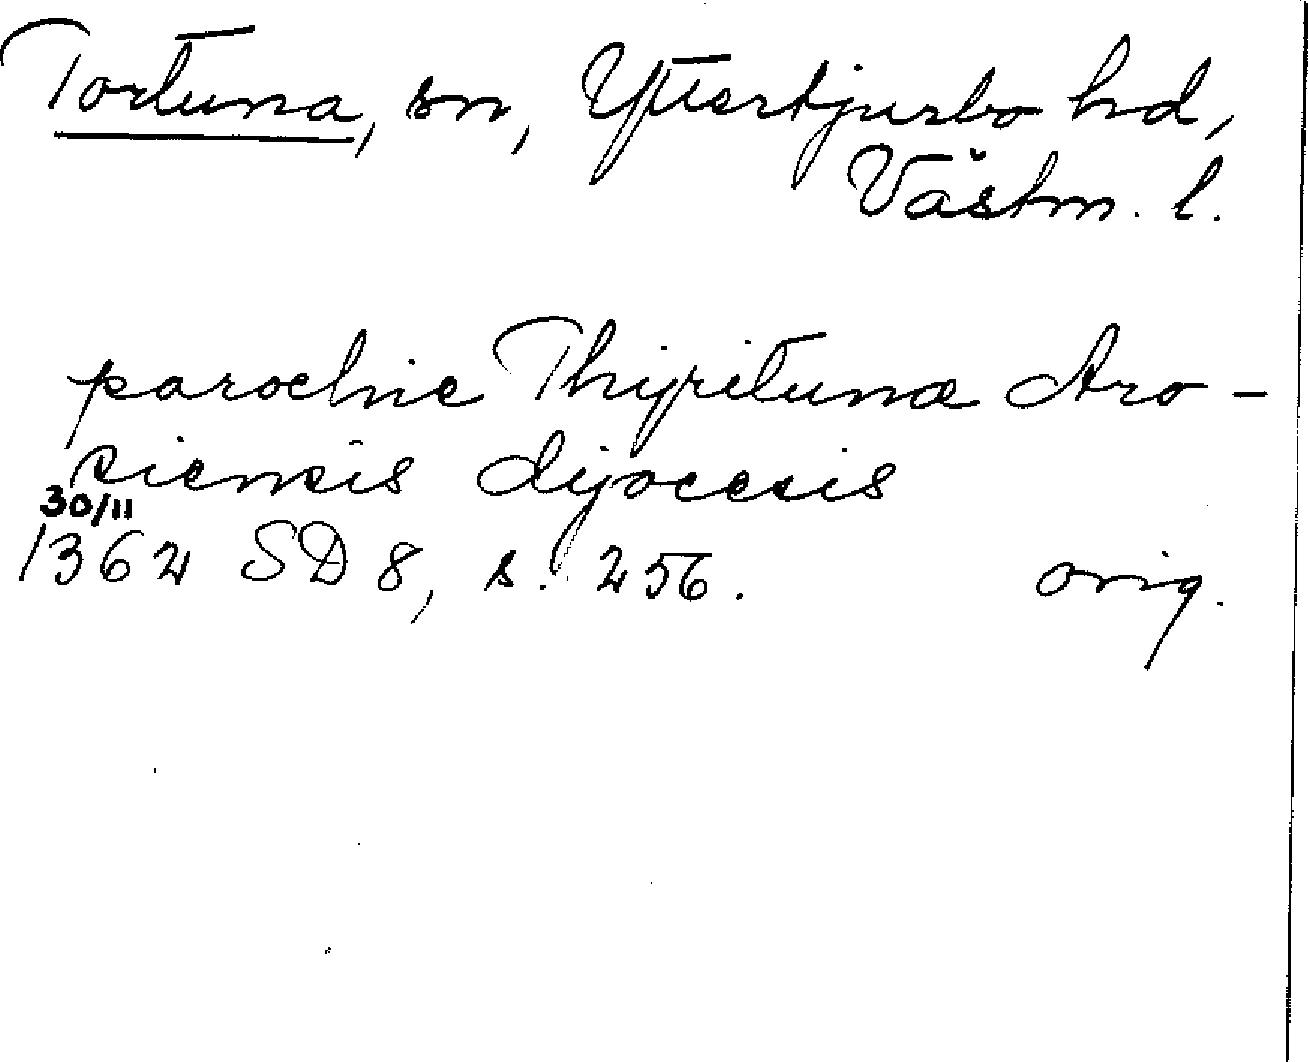 Tortuna, sn, Yttertjurbo hd,
Västm. l.
parochie Thyrituna Aro-
siensis dyocesis
30/11
1362 SD 8, s. 256. orig.